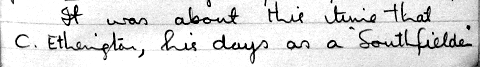 It was about this time that
C. Etherington, his days as a "Southfielde"